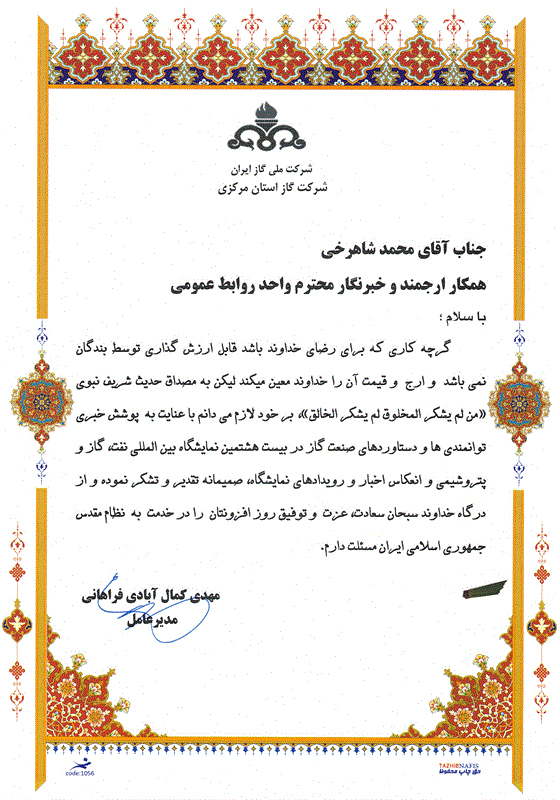 شرکت ملی گاز ایران
شرکت گاز استان مرکزی
جناب آقای محمد شاهرخی
همکار ارجمند و خبرنگار محترم واحد روابط عمومی
با سلام ؛
گرچه کاری که برای رضای خداوند باشد قابل ارزش گذاری توسط بندگان
نمی باشد و ارج و قیمت آن را خداوند معین میکند لیکن به مصداق حدیث شریف نبوی
«من لم یشکر المخلوق لم یشکر الخالق»، بر خود لازم می دانم با عنایت به پوشش خبری
توانمندی ها و دستاوردهای صنعت گاز در بیست هشتمین نمایشگاه بین المللی نفت، گاز و
پتروشیمی و انعکاس اخبار و رویدادهای نمایشگاه، صمیمانه تقدیر و تشکر نموده و از
درگاه خداوند سبحان سعادت، عزت و توفیق روز افزونتان را در خدمت به نظام مقدس
جمهوری اسلامی ایران مسئلت دارم.
مهدی کمال آبادی فراهانی
مدیرعامل
code:1056
TAZHIBNAFIS
حق چاپ محفوظ